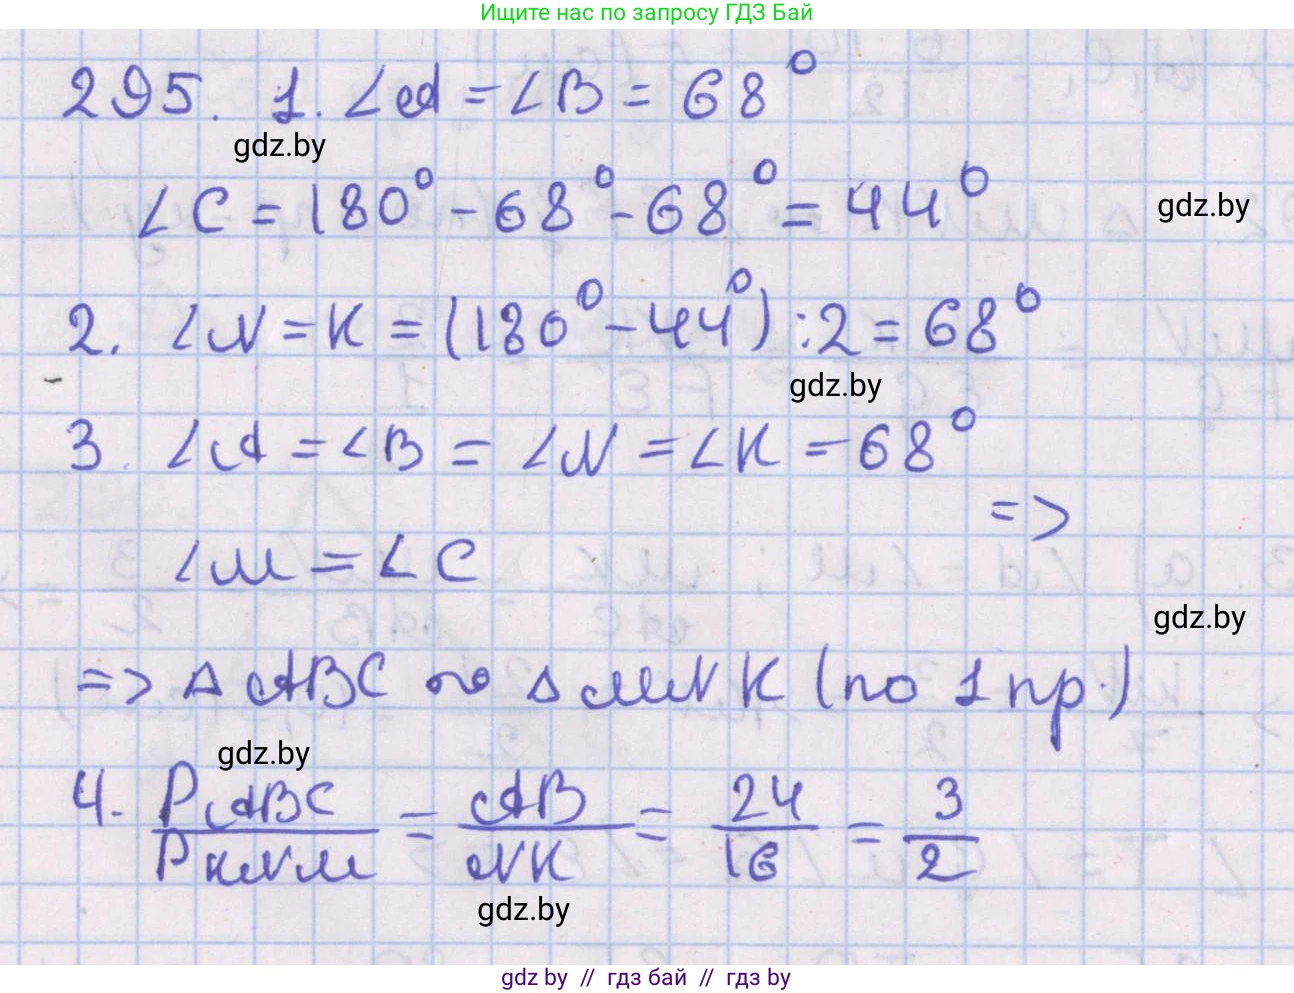 Ищите нас по запросу ГДЗ Бай
295. 1. ∠A = ∠B = 68°
gdz.by
∠C = 180° - 68° - 68° = 44°
gdz.by
2. ∠N = K = (180° - 44°) : 2 = 68°
gdz.by
3. ∠A = ∠B = ∠N = ∠K = 68°
=>
∠M = ∠C
gdz.by
=> Δ ABC ∾ Δ MNK (по 1 пр.)
gdz.by
4. P ABC / P KNM = AB / NK = 24 / 16 = 3 / 2
gdz.by
gdz by // гдз бай // гдз by